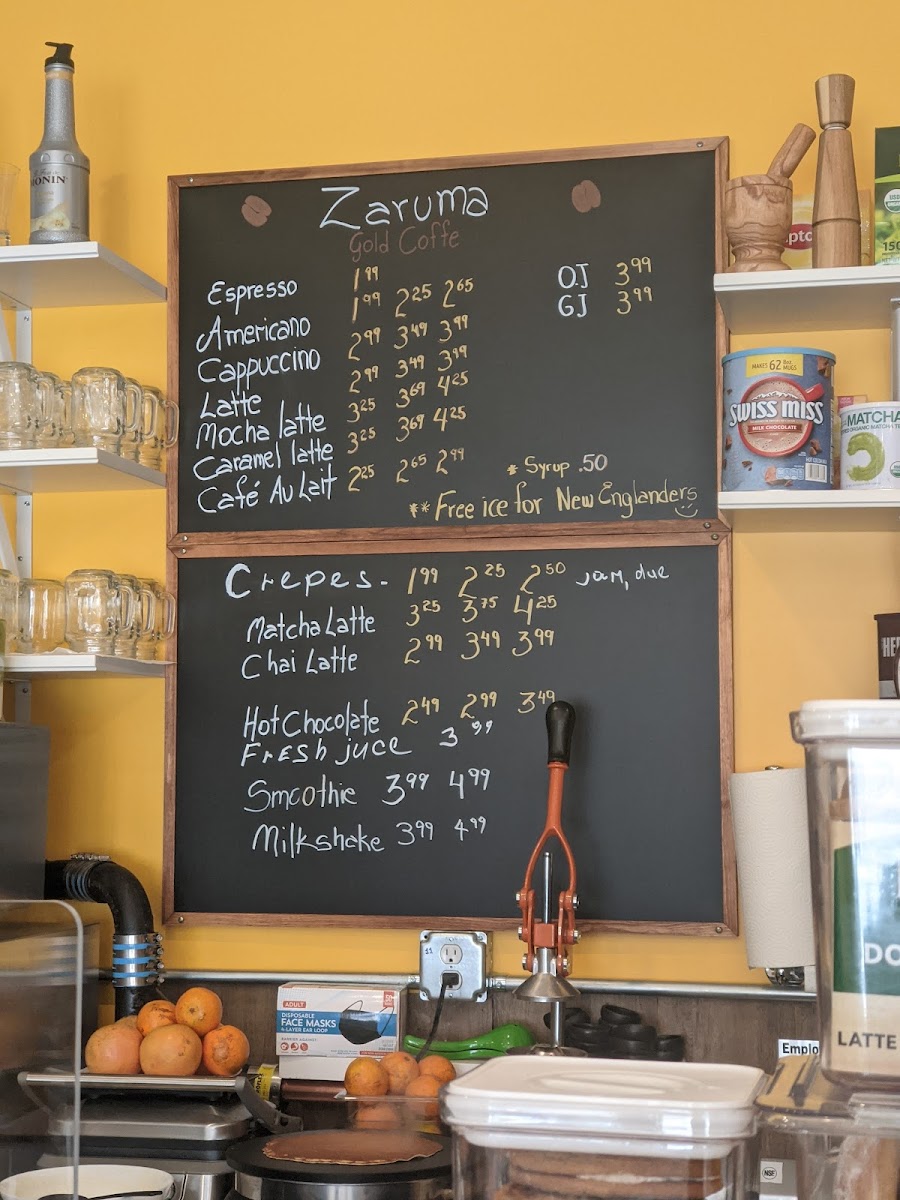 Zaruma
Gold Coffe
Espresso 1.99
Americano 1.99 2.25 2.65
Cappuccino 2.99 3.49 3.99
Latte 2.99 3.49 3.99
Mocha latte 3.25 3.69 4.25
Caramel latte 3.25 3.69 4.25
Café Au Lait 2.25 2.65 2.99
OJ 3.99
GJ 3.99
* Syrup .50
** Free ice for New Englanders
Crepes- 1.99 2.25 2.50 Jam, due
Matcha Latte 3.25 3.75 4.25
Chai Latte 2.99 3.49 3.99
Hot Chocolate 2.49 2.99 3.49
FRESH juce 3.99
Smoothie 3.99 4.99
Milkshake 3.99 4.99
MONIN
MAKES 62 8oz MUGS
SWISS MISS
MILK CHOCOLATE
MATCHA
ADULT
DISPOSABLE
FACE MASKS
4-LAYER EAR LOOP
11
Emplo
DO
LATTE
NSF